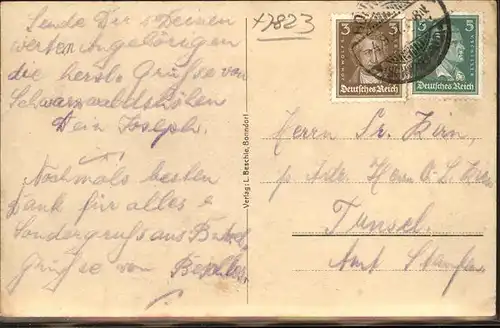 Sende Dir & Deinen
werten Angehörigen
die herzl. Grüsse von
Schwarzwaldshöhen
Dein Joseph.
Nochmals besten
Dank für alles &
Sondergruss aus
Grüsse von
+7823
3
Deutsches Reich
5
Deutsches Reich
Verlag: L. Beschle, Bonndorf
Herrn Fr. Kirn,
p. Adr. Herrn
Tunsel.
Amt Staufen